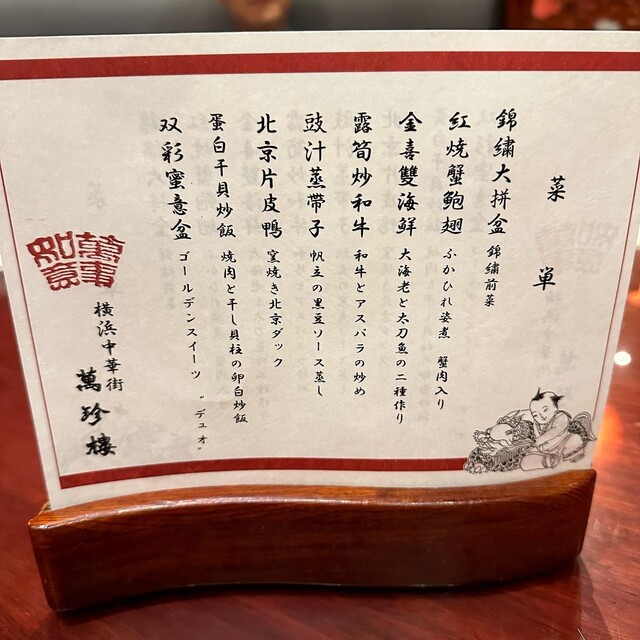 菜單
錦繡大拼盆 錦繡前菜
紅燒蟹鮑翅 ふかひれ姿煮 蟹肉入り
金喜雙海鮮 大海老と太刀魚の二種作り
露筍炒和牛 和牛とアスパラの炒め
豉汁蒸帶子 帆立の黒豆ソース蒸し
北京片皮鴨 窯焼き北京ダック
蛋白干貝炒飯 焼肉と干し貝柱の卵白炒飯
双彩蜜意盆 ゴールデンスイーツ “デュオ”
萬事如意
橫浜中華街
萬珍樓